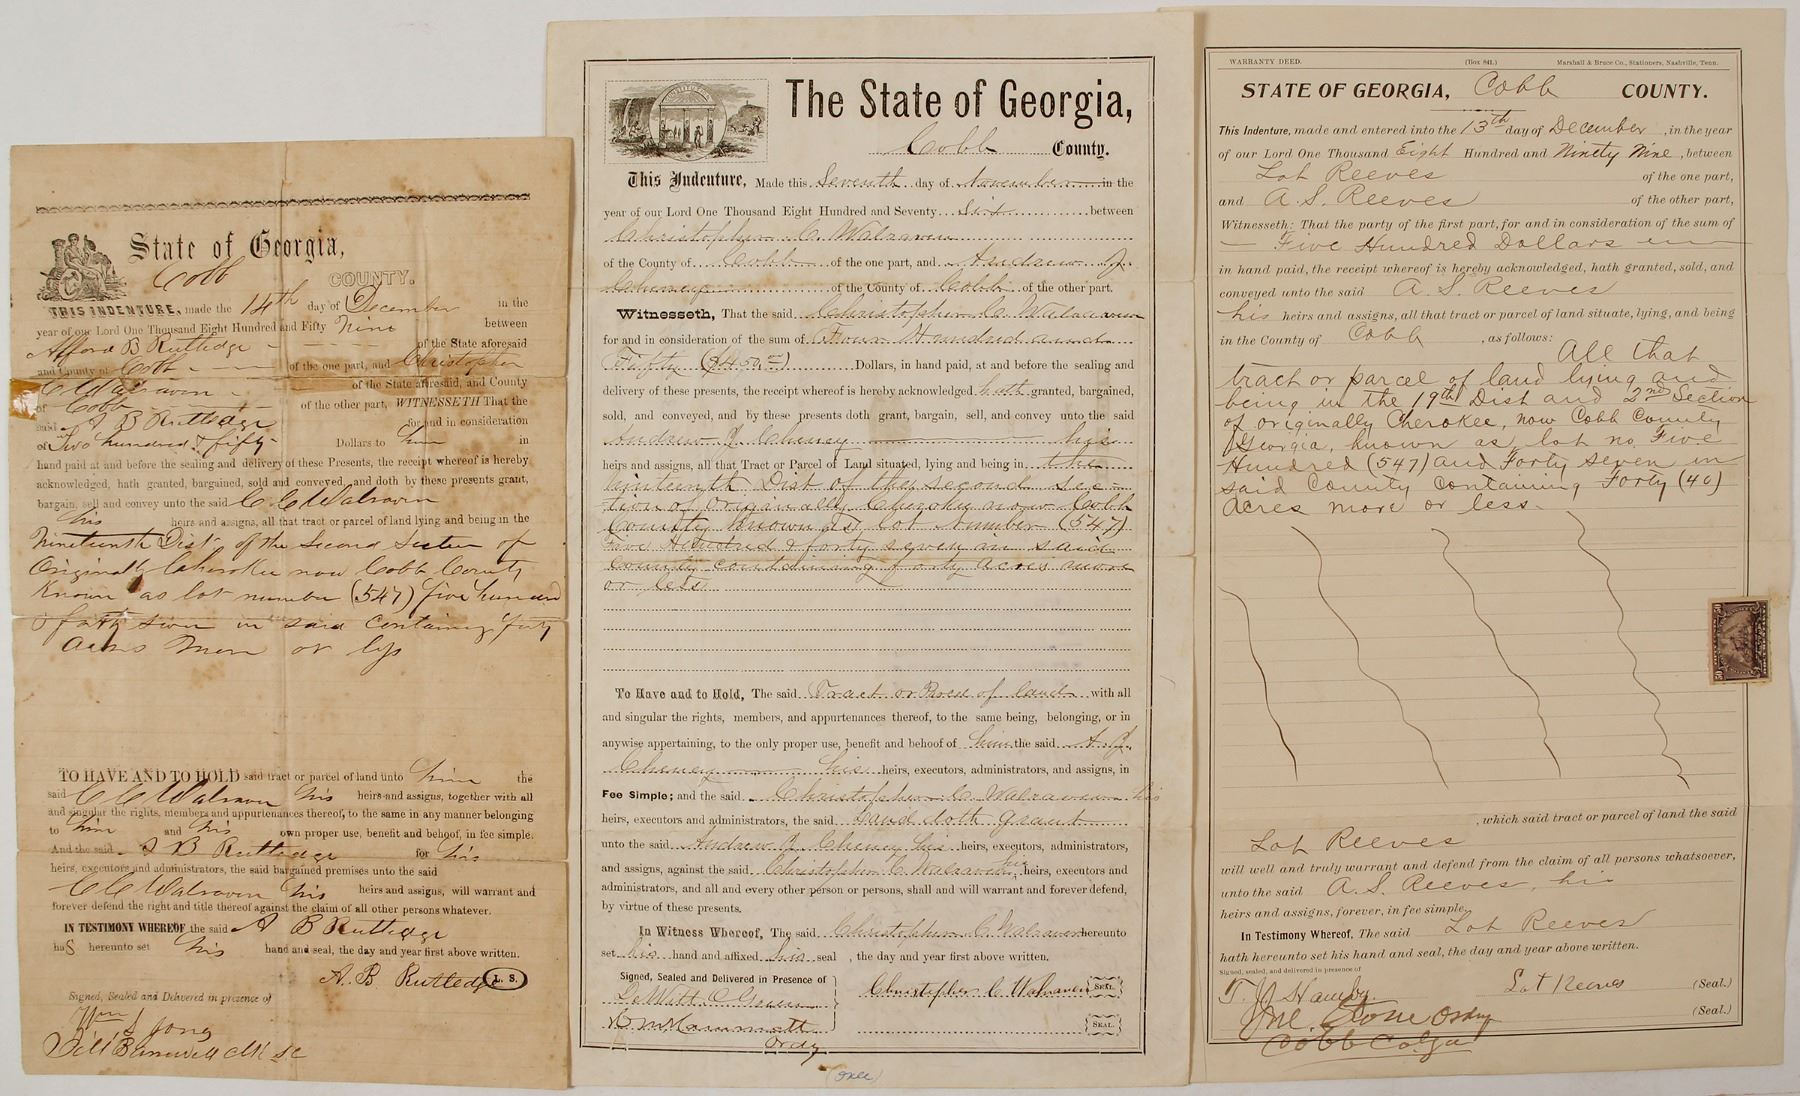 State of Georgia,
Cobb
COUNTY.
THIS INDENTURE, made the 14th day of December in the
year of our Lord One Thousand Eight Hundred and Fifty Nine between
Alford B Rutledge of the State aforesaid
and County of Cobb of the one part, and Christopher
C Walraven of the State aforesaid, and County
of Cobb of the other part, WITNESSETH That the
said A B Rutledge for and in consideration
of Two hundred & fifty Dollars to him in
hand paid at and before the sealing and delivery of these Presents, the receipt whereof is hereby
acknowledged, hath granted, bargained, sold and conveyed, and doth by these presents grant,
bargain, sell and convey unto the said C C Walraven
his heirs and assigns, all that tract or parcel of land lying and being in the
Nineteenth Dist of the Second Section of
Originally Cherokee now Cobb County
Known as lot number (547) five hundred
& forty seven in said containing forty
acres more or less
TO HAVE AND TO HOLD said tract or parcel of land unto him the
said C C Walraven his heirs and assigns, together with all
and singular the rights, members and appurtenances thereof, to the same in any manner belonging
to him and his own proper use, benefit and behoof, in fee simple.
And the said A B Rutledge for his
heirs, executors and administrators, the said bargained premises unto the said
C C Walraven his heirs and assigns, will warrant and
forever defend the right and title thereof against the claim of all other persons whatever.
IN TESTIMONY WHEREOF the said A B Rutledge
haS hereunto set his hand and seal, the day and year first above written.
A. B. Rutledge L. S.
Signed, Sealed and Delivered in presence of
Wm J
The State of Georgia,
Cobb County.
This Indenture, Made this Seventh day of November in the
year of our Lord One Thousand Eight Hundred and Seventy Six between
Christopher C. Walraven
of the County of Cobb of the one part, and Andrew J.
Cheney of the County of Cobb of the other part.
Witnesseth, That the said Christopher C. Walraven
for and in consideration of the sum of Four Hundred and
Fifty ($450.00) Dollars, in hand paid, at and before the sealing and
delivery of these presents, the receipt whereof is hereby acknowledged hath granted, bargained,
sold, and conveyed, and by these presents doth grant, bargain, sell, and convey unto the said
Andrew J. Cheney his
heirs and assigns, all that Tract or Parcel of Land situated, lying and being in the
ninteenth Dist of the second sec-
tion of Originally Cherokee now Cobb
County known as lot number (547)
Five Hundred & forty seven in said
County containing forty acres more
or less
To Have and to Hold, The said Tract or Parcel of land with all
and singular the rights, members, and appurtenances thereof, to the same being, belonging, or in
anywise appertaining, to the only proper use, benefit and behoof of him the said A. J.
Cheney his heirs, executors, administrators, and assigns, in
Fee Simple; and the said Christopher C. Walraven his
heirs, executors and administrators, the said land doth grant
unto the said Andrew J. Cheney his heirs, executors, administrators,
and assigns, against the said Christopher C. Walraven his heirs, executors and
administrators, and all and every other person or persons, shall and will warrant and forever defend,
by virtue of these presents.
In Witness Whereof, The said Christopher C. Walraven hereunto
set his hand and affixed his seal, the day and year first above written.
Signed, Sealed and Delivered in Presence of
Christopher C Walraven SEAL.
SEAL.
Ordy
(over)
WARRANTY DEED. (Box 841.) Marshall & Bruce Co., Stationers, Nashville, Tenn.
STATE OF GEORGIA, Cobb COUNTY.
This Indenture, made and entered into the 13th day of December, in the year
of our Lord One Thousand Eight Hundred and Ninety Nine, between
Lot Reeves of the one part,
and A. S. Reeves of the other part,
Witnesseth: That the party of the first part, for and in consideration of the sum of
Five Hundred Dollars
in hand paid, the receipt whereof is hereby acknowledged, hath granted, sold, and
conveyed unto the said A. S. Reeves
his heirs and assigns, all that tract or parcel of land situate, lying, and being
in the County of Cobb, as follows: All that
tract or parcel of land lying and
being in the 19th Dist and 2nd Section
of originally Cherokee, now Cobb County
Georgia, known as lot no. Five
Hundred (547) and Forty seven in
said County containing Forty (40)
Acres more or less.
, which said tract or parcel of land the said
Lot Reeves
will well and truly warrant and defend from the claim of all persons whatsoever,
unto the said A. S. Reeves, his
heirs and assigns, forever, in fee simple.
In Testimony Whereof, The said Lot Reeves
hath hereunto set his hand and seal, the day and year above written.
Signed, sealed, and delivered in presence of
Lot Reeves (Seal.)
Jno. Stone Ordy (Seal.)
Cobb Co. Ga
50 50